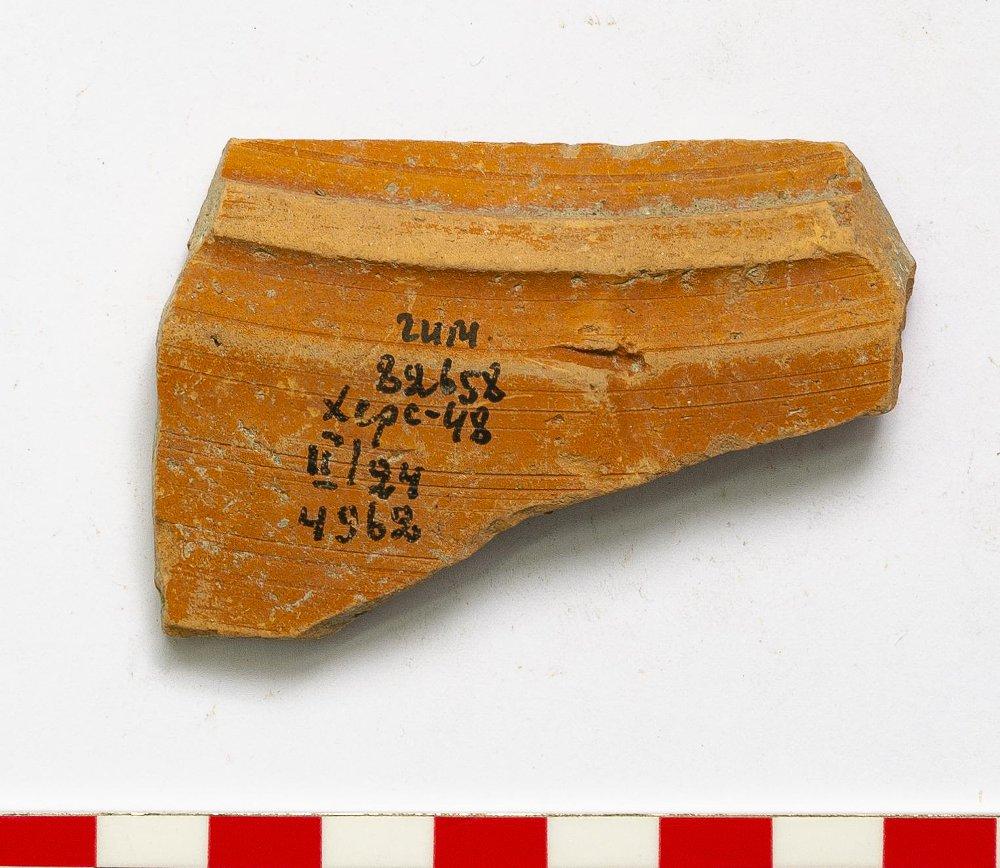 гим
82658
Херс-48
II/24
4962